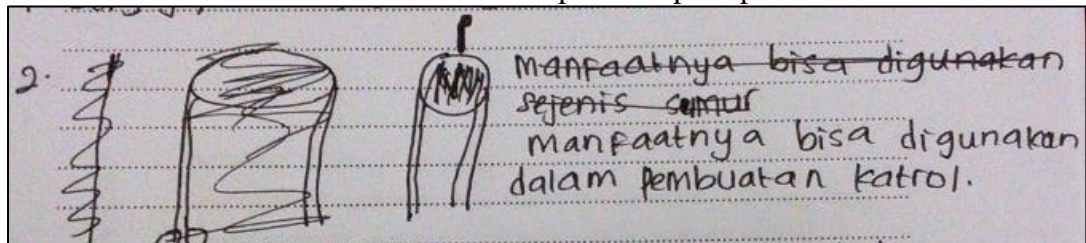 2.
manfaatnya bisa digunakan
sejenis sumur
manfaatnya bisa digunakan
dalam pembuatan katrol.